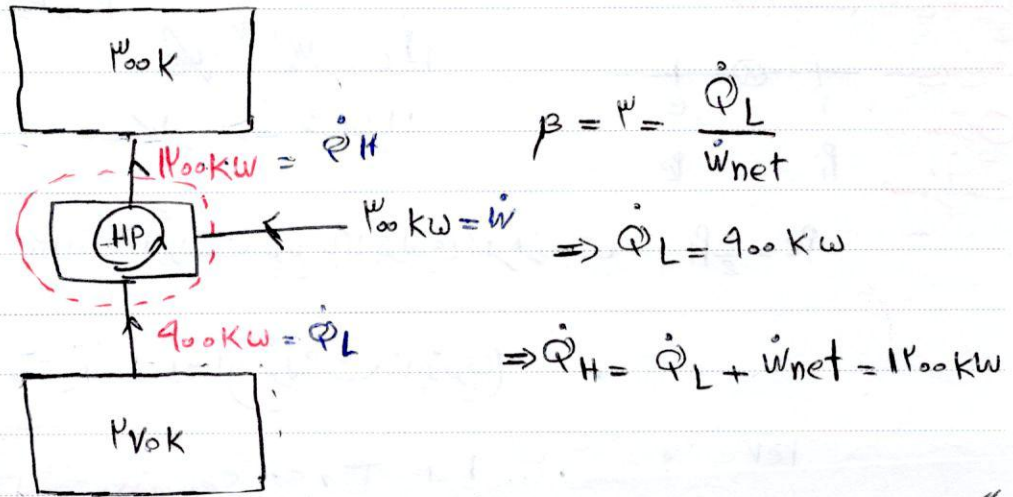 ۳۰۰ K
۱۲۰۰ KW = Q̇H
HP
۳۰۰ KW = Ẇ
۹۰۰ KW = Q̇L
۲۷۰ K
β = ۳ = Q̇L / Ẇnet
⇒ Q̇L = ۹۰۰ KW
⇒ Q̇H = Q̇L + Ẇnet = ۱۲۰۰ KW